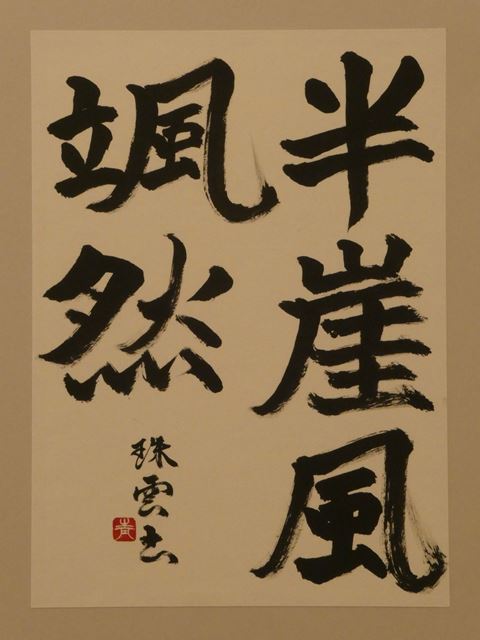 半崖風
颯然
珠雲書